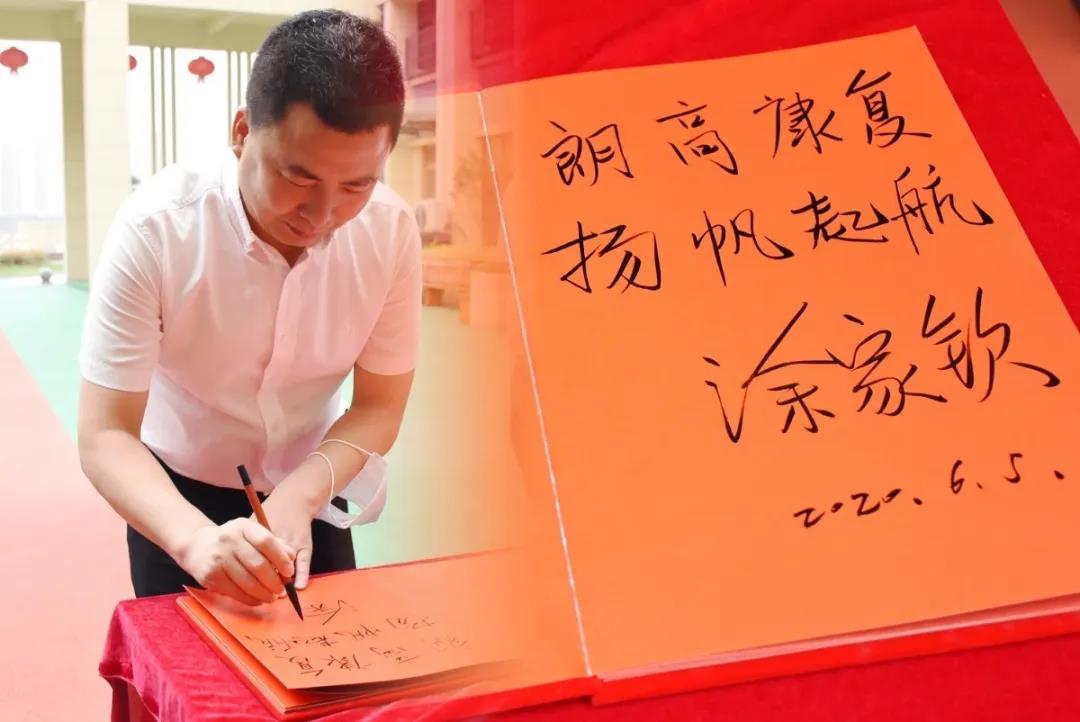 朗高康复
扬帆起航
涂家钦
2020.6.5.